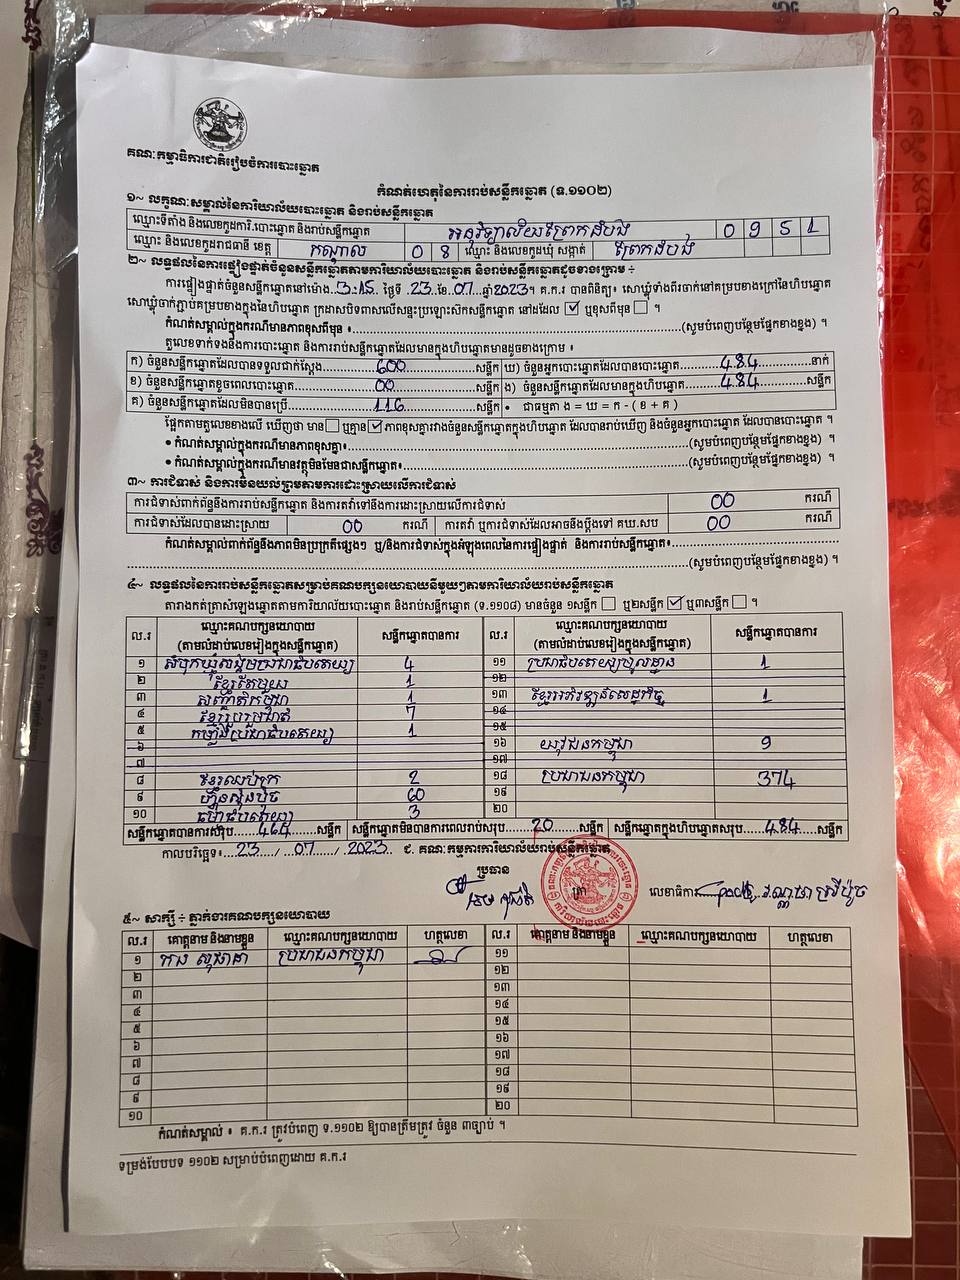 គណៈកម្មាធិការជាតិរៀបចំការបោះឆ្នោត
កំណត់ហេតុនៃការរាប់សន្លឹកឆ្នោត (ទ.១១០២)
១~ លក្ខណៈសម្គាល់នៃការិយាល័យបោះឆ្នោត និងរាប់សន្លឹកឆ្នោត
ឈ្មោះទីតាំង និងលេខកូដការិ.បោះឆ្នោត និងរាប់សន្លឹកឆ្នោត អនុវិទ្យាល័យព្រែកដំបង 0 9 5 1
ឈ្មោះ និងលេខកូដរាជធានី ខេត្ត កណ្តាល 0 8 ឈ្មោះ និងលេខកូដឃុំ សង្កាត់ ព្រែកដំបង
២~ លទ្ធផលនៃការផ្ទៀងផ្ទាត់ចំនួនសន្លឹកឆ្នោតតាមការិយាល័យបោះឆ្នោត និងរាប់សន្លឹកឆ្នោតដូចខាងក្រោម ÷
ការផ្ទៀងផ្ទាត់ចំនួនសន្លឹកឆ្នោតនៅម៉ោង 3:15 ថ្ងៃទី 23 ខែ 07 ឆ្នាំ 2023។ គ.ក.រ បានពិនិត្យ៖ សោឃ្លុំទាំងពីរចាក់នៅគម្របខាងក្រៅនៃហិបឆ្នោត
សោឃ្លុំចាក់ភ្ជាប់គម្របខាងក្នុងនៃហិបឆ្នោត ក្រដាសបិទពាសលើសន្លះប្រឡោះស៊កសន្លឹកឆ្នោត នៅដដែល ☑ ឬខុសពីមុន ☐ ។
កំណត់សម្គាល់ក្នុងករណីមានភាពខុសពីមុន ៖ (សូមបំពេញបន្ថែមផ្នែកខាងខ្នង) ។
តួលេខទាក់ទងនឹងការបោះឆ្នោត និងការរាប់សន្លឹកឆ្នោតដែលមានក្នុងហិបឆ្នោតមានដូចខាងក្រោម ៖
ក) ចំនួនសន្លឹកឆ្នោតដែលបានទទួលជាក់ស្តែង 600 សន្លឹក ឃ) ចំនួនអ្នកបោះឆ្នោតដែលបានបោះឆ្នោត 484 នាក់
ខ) ចំនួនសន្លឹកឆ្នោតខូចពេលបោះឆ្នោត 00 សន្លឹក ង) ចំនួនសន្លឹកឆ្នោតដែលមានក្នុងហិបឆ្នោត 484 សន្លឹក
គ) ចំនួនសន្លឹកឆ្នោតដែលមិនបានប្រើ 116 សន្លឹក • ជាធម្មតា ង = ឃ = ក - ( ខ + គ )
ផ្អែកតាមតួលេខខាងលើ ឃើញថា មាន ☐ ឬគ្មាន ☑ ភាពខុសគ្នារវាងចំនួនសន្លឹកឆ្នោតក្នុងហិបឆ្នោត ដែលបានរាប់ឃើញ និងចំនួនអ្នកបោះឆ្នោត ដែលបានបោះឆ្នោត ។
• កំណត់សម្គាល់ក្នុងករណីមានភាពខុសគ្នា៖ (សូមបំពេញបន្ថែមផ្នែកខាងខ្នង) ។
• កំណត់សម្គាល់ក្នុងករណីមានវត្ថុមិនមែនជាសន្លឹកឆ្នោត៖ (សូមបំពេញបន្ថែមផ្នែកខាងខ្នង) ។
៣~ ការជំទាស់ និងការមិនយល់ព្រមតាមការដោះស្រាយលើការជំទាស់
ការជំទាស់ពាក់ព័ន្ធនឹងការរាប់សន្លឹកឆ្នោត និងការតវ៉ាទៅនឹងការដោះស្រាយលើការជំទាស់ 00 ករណី
ការជំទាស់ដែលបានដោះស្រាយ 00 ករណី ការតវ៉ា ឬការជំទាស់ដែលអាចនឹងប្តឹងទៅ គឃ.សប 00 ករណី
កំណត់សម្គាល់ពាក់ព័ន្ធនឹងភាពមិនប្រក្រតីផ្សេងៗ ឬ/និងការជំទាស់ក្នុងអំឡុងពេលនៃការផ្ទៀងផ្ទាត់ និងការរាប់សន្លឹកឆ្នោត៖
(សូមបំពេញបន្ថែមផ្នែកខាងខ្នង) ។
៤~ លទ្ធផលនៃការរាប់សន្លឹកឆ្នោតសម្រាប់គណបក្សនយោបាយនីមួយៗតាមការិយាល័យរាប់សន្លឹកឆ្នោត
តារាងកត់ត្រាសំឡេងឆ្នោតតាមការិយាល័យបោះឆ្នោត និងរាប់សន្លឹកឆ្នោត (ទ.១១០៨) មានចំនួន ១សន្លឹក ☐ ឬ២សន្លឹក ☑ ឬ៣សន្លឹក ☐ ។
ល.រ ឈ្មោះគណបក្សនយោបាយ (តាមលំដាប់លេខរៀងក្នុងសន្លឹកឆ្នោត) សន្លឹកឆ្នោតបានការ ល.រ ឈ្មោះគណបក្សនយោបាយ (តាមលំដាប់លេខរៀងក្នុងសន្លឹកឆ្នោត) សន្លឹកឆ្នោតបានការ
១ សំបុកឃ្មុំសង្គមប្រជាធិបតេយ្យ 4 ១១ ប្រជាធិបតេយ្យមូលដ្ឋាន 1
២ ខ្មែរតែមួយ 1 ១២
៣ សញ្ជាតិកម្ពុជា 1 ១៣ ខ្មែរអភិវឌ្ឍន៍សេដ្ឋកិច្ច 1
៤ ខ្មែររួបរួមជាតិ 7 ១៤
៥ កម្លាំងប្រជាធិបតេយ្យ 1 ១៥
៦ ១៦ យុវជនកម្ពុជា 9
៧ ១៧
៨ ខ្មែរឈប់ក្រ 2 ១៨ ប្រជាជនកម្ពុជា 374
៩ ហ៊្វុនស៊ិនប៉ិច 60 ១៩
១០ ធម្មាធិបតេយ្យ 3 ២០
សន្លឹកឆ្នោតបានការសរុប 464 សន្លឹក សន្លឹកឆ្នោតមិនបានការពេលរាប់សរុប 20 សន្លឹក សន្លឹកឆ្នោតក្នុងហិបឆ្នោតសរុប 484 សន្លឹក
កាលបរិច្ឆេទ៖ 23 / 07 / 2023 ជ. គណៈកម្មការការិយាល័យរាប់សន្លឹកឆ្នោត
ប្រធាន
ត្រា លេខាធិការ
៥~ សាក្សី ÷ ភ្នាក់ងារគណបក្សនយោបាយ
ល.រ គោត្តនាម និងនាមខ្លួន ឈ្មោះគណបក្សនយោបាយ ហត្ថលេខា ល.រ គោត្តនាម និងនាមខ្លួន ឈ្មោះគណបក្សនយោបាយ ហត្ថលេខា
១ ប្រជាជនកម្ពុជា ១១
២ ១២
៣ ១៣
៤ ១៤
៥ ១៥
៦ ១៦
៧ ១៧
៨ ១៨
៩ ១៩
១០ ២០
កំណត់សម្គាល់ ៖ គ.ក.រ ត្រូវបំពេញ ទ.១១០២ ឱ្យបានត្រឹមត្រូវ ចំនួន ៣ច្បាប់ ។
ទម្រង់បែបបទ ១១០២ សម្រាប់បំពេញដោយ គ.ក.រ